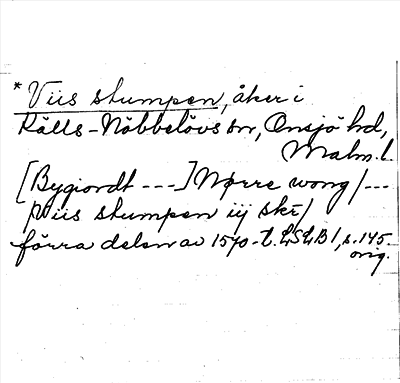 * Viis stumpen, åker i
Källs-Nöbbelövs sn, Onsjö hd,
Malm. l.
[Bygiordt ---] Nørre wong/---
/Viis stumpen iij skr/
förra delen av 1570-t. LSLB 1, s. 145
orig.